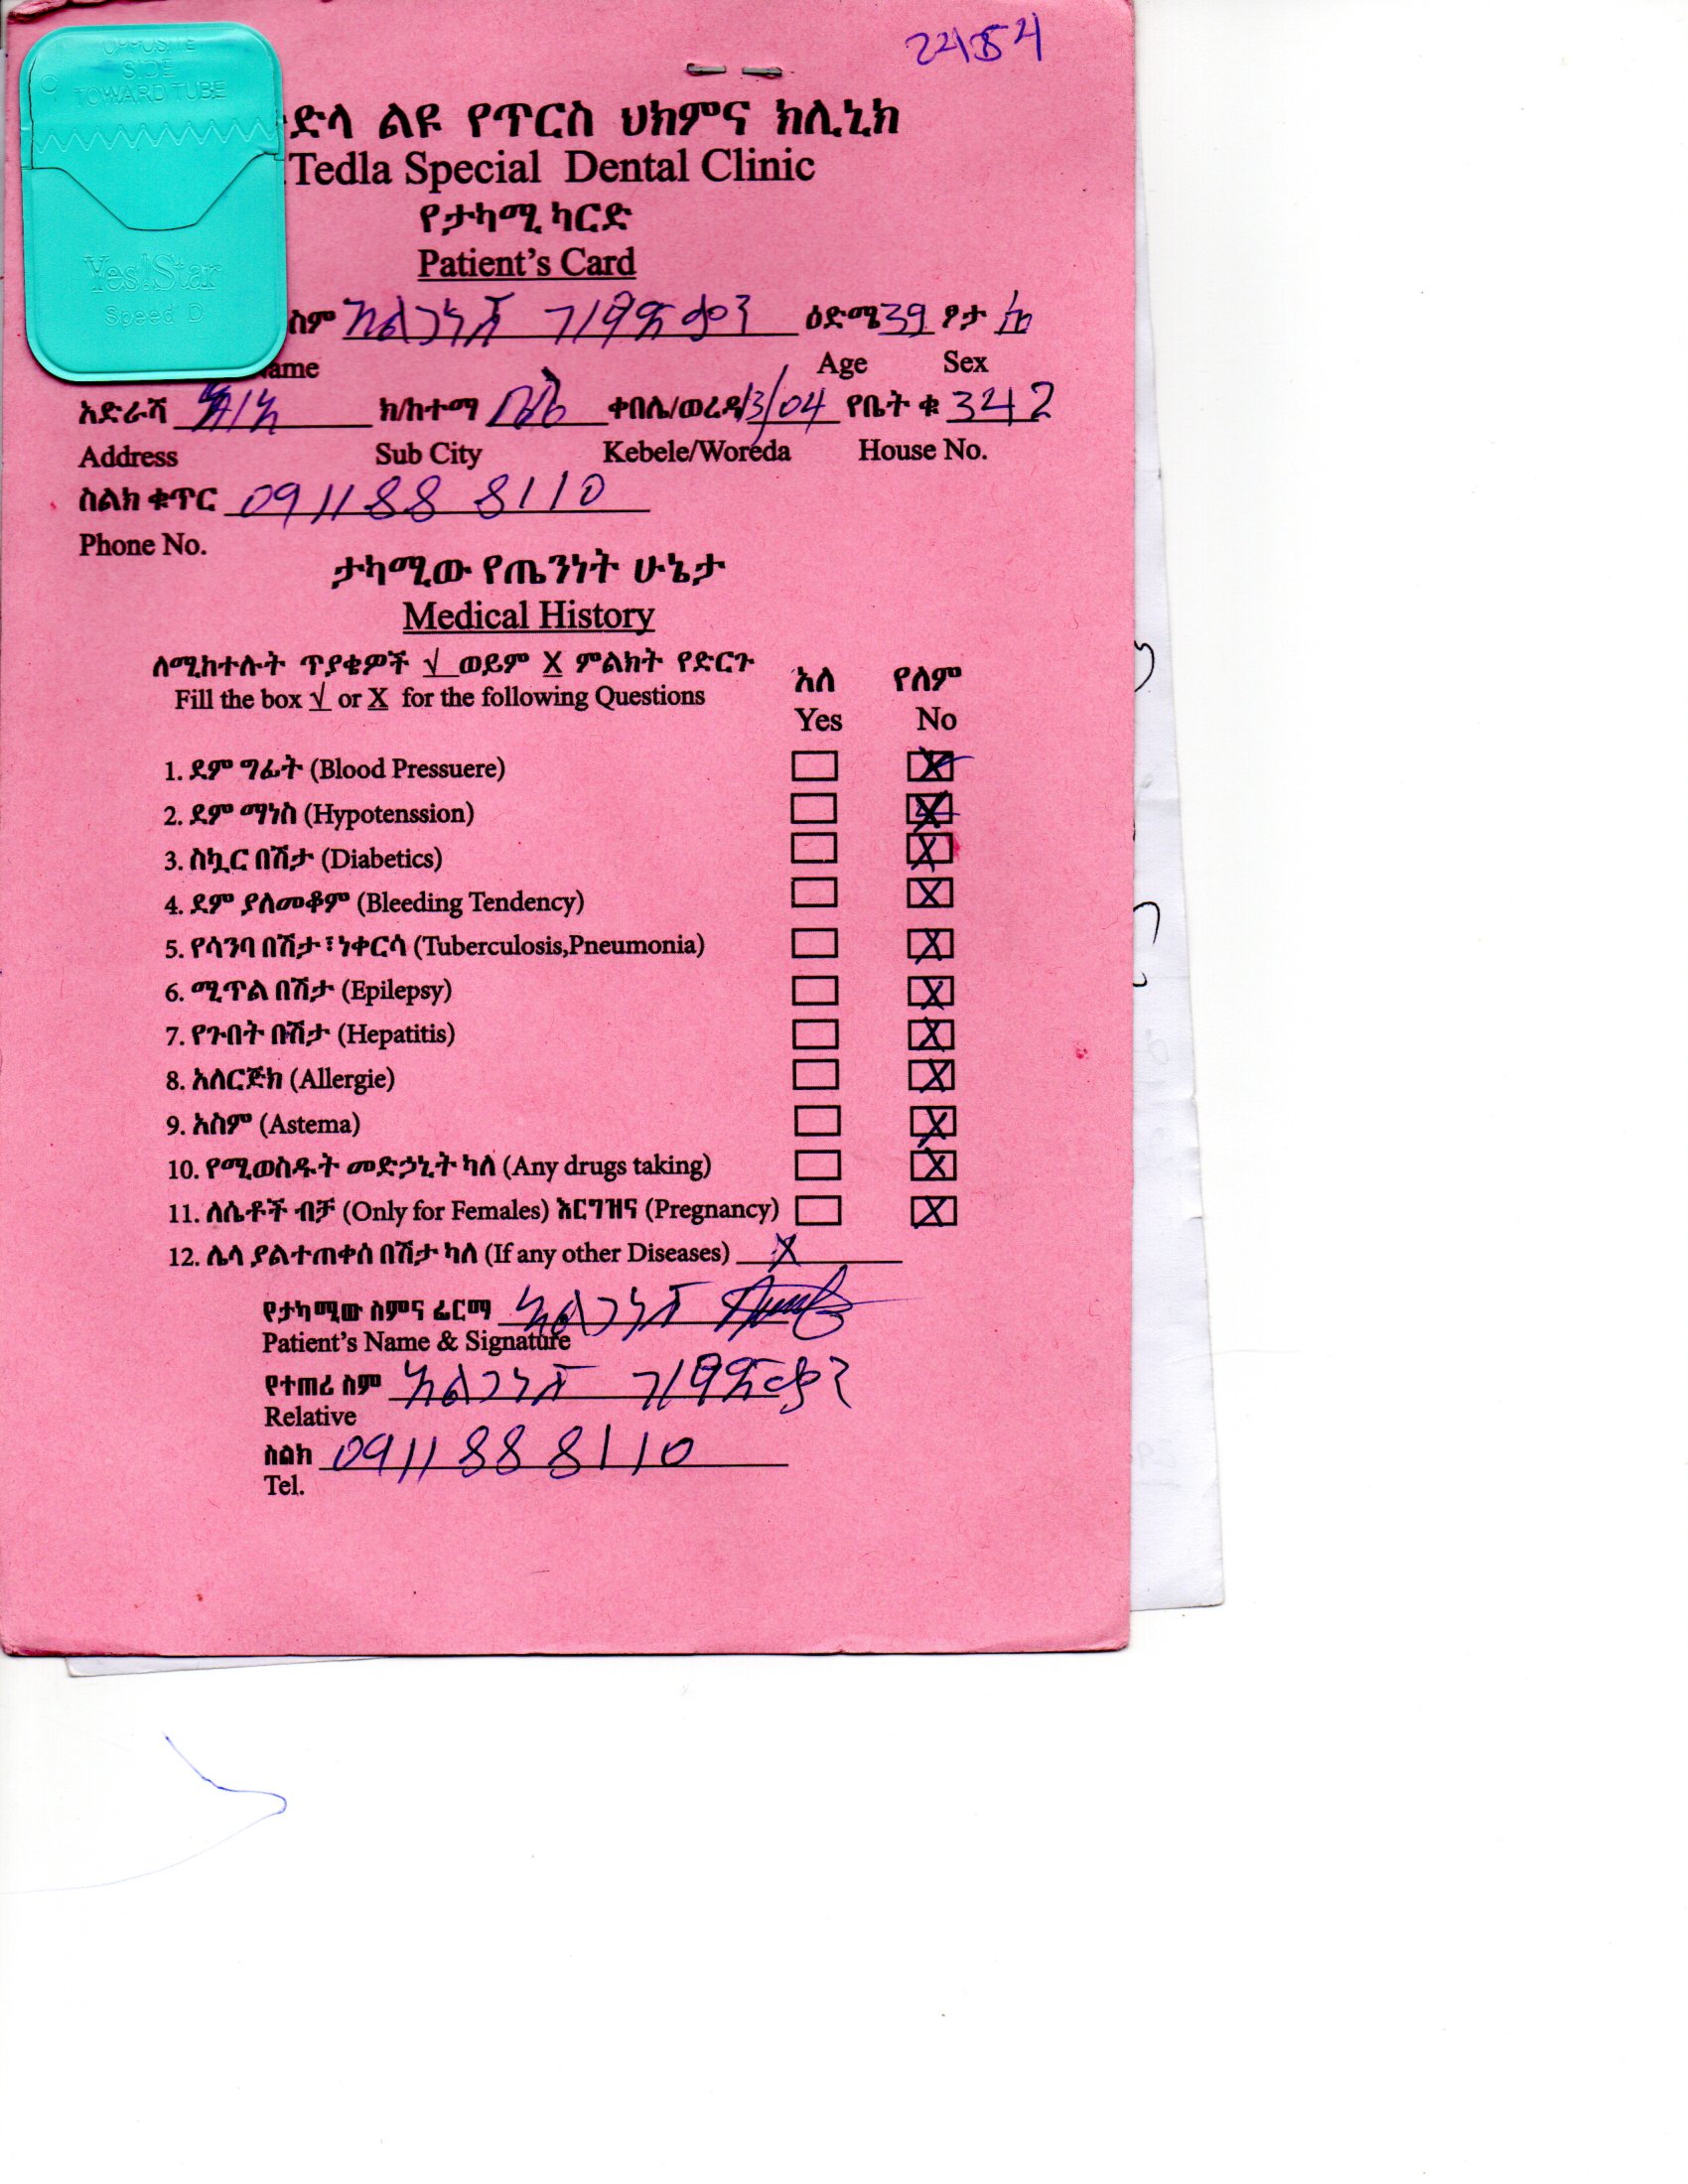 22854
OPPOSITE
SIDE
TOWARD TUBE
Yes!Star
Speed D
ድላ ልዩ የጥርስ ህክምና ክሊኒክ
Tedla Special Dental Clinic
የታካሚ ካርድ
Patient's Card
ስም አልጋነሽ ገ/ፃድቃን ዕድሜ 39 ፆታ ሴ
ame Age Sex
አድራሻ አ/አ ክ/ከተማ ቦሌ ቀበሌ/ወረዳ 13/04 የቤት ቁ 342
Address Sub City Kebele/Woreda House No.
ስልክ ቁጥር 0911 88 8110
Phone No.
ታካሚው የጤንነት ሁኔታ
Medical History
ለሚከተሉት ጥያቄዎች √ ወይም X ምልክት የድርጉ አለ የለም
Fill the box √ or X for the following Questions Yes No
1. ደም ግፊት (Blood Pressuere) X
2. ደም ማነስ (Hypotenssion) X
3. ስኳር በሽታ (Diabetics) X
4. ደም ያለመቆም (Bleeding Tendency) X
5. የሳንባ በሽታ፣ነቀርሳ (Tuberculosis,Pneumonia) X
6. ሚጥል በሽታ (Epilepsy) X
7. የጉበት በሽታ (Hepatitis) X
8. አለርጅክ (Allergie) X
9. አስም (Astema) X
10. የሚወስዱት መድኃኒት ካለ (Any drugs taking) X
11. ለሴቶች ብቻ (Only for Females) እርግዝና (Pregnancy) X
12. ሌላ ያልተጠቀሰ በሽታ ካለ (If any other Diseases) X
የታካሚው ስምና ፊርማ አልጋነሽ
Patient's Name & Signature
የተጠሪ ስም አልጋነሽ ገ/ፃድቃን
Relative
ስልክ 0911 88 8110
Tel.